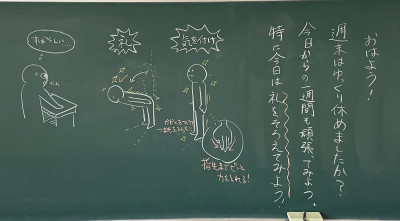 おはよう！
週末はゆっくり休めましたか？
今日からの一週間も頑張ってみよう。
特に今日は礼をそろえてみよう！
気を付け
指先までピンと
力を入れる！
礼
すばらしい…